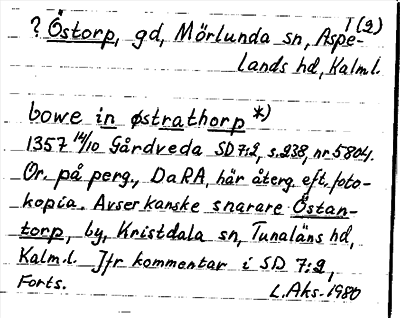 1(2)
? Östorp, gd, Mörlunda sn, Aspe-
lands hd, Kalm.l.
bowe in østrathorp *)
1357 14/10 Gårdveda SD 7:2, s.238, nr 5804.
Or. på perg., DaRA, här återg. eft. foto-
kopia. Avser kanske snarare Östan-
torp, by, Kristdala sn, Tunaläns hd,
Kalm.l. Jfr kommentar i SD 7:2,
Forts. L.Aks. 1980